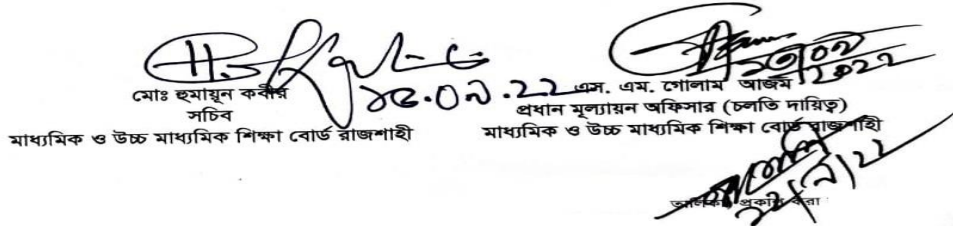 মোঃ হুমায়ূন কবীর
সচিব
মাধ্যমিক ও উচ্চ মাধ্যমিক শিক্ষা বোর্ড রাজশাহী
১৫.০৯.২২
এস. এম. গোলাম আজম
প্রধান মূল্যায়ন অফিসার (চলতি দায়িত্ব)
মাধ্যমিক ও উচ্চ মাধ্যমিক শিক্ষা বোর্ড রাজশাহী
প্রকাশ করা